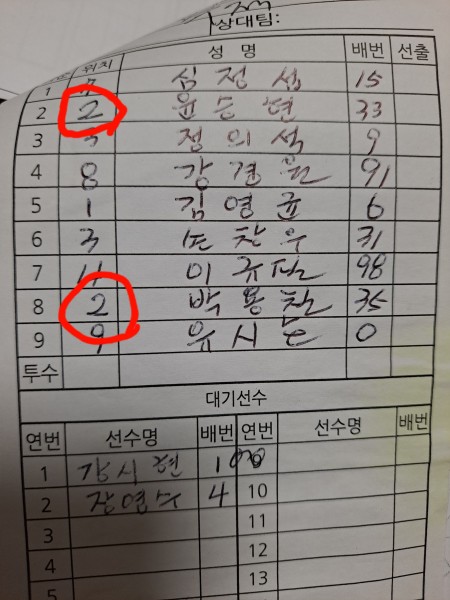 상대팀:
위치 성 명 배번 선출
1 7 심 정 섭 15
2 2 윤 승 현 33
3 정 의 석 9
4 8 강 경 원 91
5 1 김 영 균 6
6 3 찬 우 31
7 11 이 규 98
8 2 박 용 찬 35
9 9 유 시 0
투수
대기선수
연번 선수명 배번 연번 선수명 배번
1 강 시 현
2 장 연 수 4 10
3 11
4 12
5 13